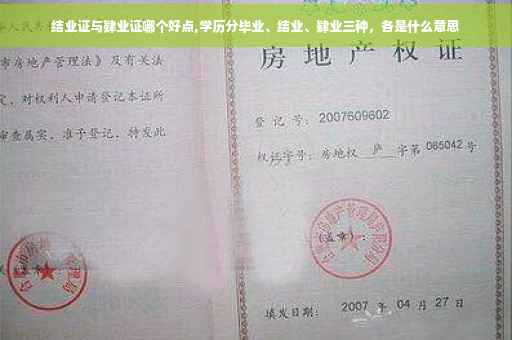 结业证与肄业证哪个好点,学历分毕业、结业、肄业三种，各是什么意思
市房地产管理法》及有关法
定，对权利人申请登记本证所
审查属实，准予登记，特发此
房地产权
登 记 号：2007609602
权证字号：房地权 庐 字第 085042 号
(盖章)：
填发日期： 2007 年 04 月 27 日